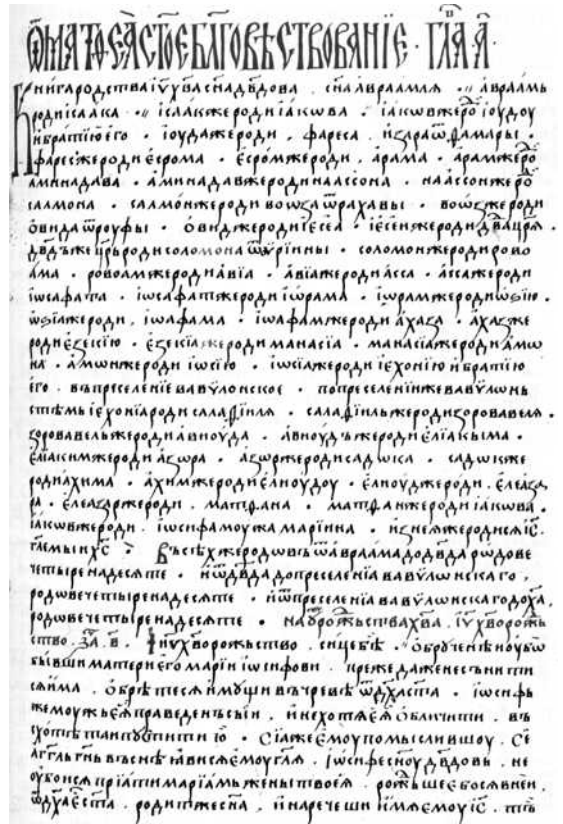 Ѿ МАТѲЕА СТ҃ОЕ БЛ҃ГОВѢСТВОВАНЇЕ · ГЛ҃ВА · А҃ ·
Книга родства і҃у х҃ва сн҃а дв҃дова · сн҃а авраамля ·· авраамъ
роди ісаака ·· ісаак же роди іакѡва · іакѡв же ро іоудоу
и братїю его · іоуда же роди · фареса · и зара ѿ ѳамары ·
фарес же роди есрома · есром же роди · арама · арам же ро
аминадава · аминадав же роди наассона · наассон же ро
салмона · салмон же роди вооза ѿ рахавы · вооз же роди
овида ѿ роуфы · овид же роди іесеа · іесеи же роди дв҃да цр҃я ·
дв҃дъ же цр҃ь роди соломона ѿ оурїины · соломон же роди рово
ама · ровоам же роди авїа · авїа же роди асса · аса же роди
іѡсафата · іѡсафат же роди іѡрама · іѡрам же роди ѡзїю ·
ѡзїа же роди · іѡафама · іѡафам же роди ахаза · ахаз же
роди езекїю · езекїа же роди манасїа · манасїа же роди амѡ
на · амѡн же роди іѡсїю · іѡсїа же роди іехонїю и братїю
его · въ преселенїе вавѵлонское · по преселенїи же вавѵлонь
стѣмь іехонїа роди салаѳїиля · салаѳїиль же роди зоровавеля ·
зоровавель же роди авиоуда · авиоудъ же роди елїакыма ·
елїаким же роди азѡра · азѡр же роди садѡка · садѡк же
роди ахима · ахим же роди елиоудоу · елиоуд же роди · елеаза
ра · елеазар же роди · матѳана · матѳан же роди іакѡва ·
іакѡв же роди · іѡсифа моужа марїина · из нея же родися і҃с
гл҃емыи х҃с · Въсѣх же родѡвъ ѿ авраама до дв҃да родове
четыренадесяте · и ѿ дв҃да до преселенїа вавѵлонскаго ·
родѡве четыренадесяте · и ѿ преселенїа вавѵлонскаго до х҃а ·
родѡве четыренадесяте · на рожьства х҃ва · і҃у х҃во рожь
ство · за҃ · в҃ · І҃у х҃во рожьство · сице бѣ · обрученѣ ноубо
бывши матери его марїи іѡсифови · преже даже не сънити
сяима · обрѣтеся имущи въ чревѣ ѿ дх҃а ст҃а · іѡсифь
же моужь ея праведенъ сыи · и не хотя ея обличити · въ
схотѣ таи пустити ю · Сїа же емоу помысливъшоу · се
агг҃лъ гн҃ь въ снѣ явися емоу гл҃я · іѡсифе сн҃оу дв҃довъ · не
оубоися прїати марїамь жены твоея · рожьшеебося в неи ·
ѿ дх҃а ест ст҃а · родит же сн҃а · и наречеши имя емоу і҃с · тъ